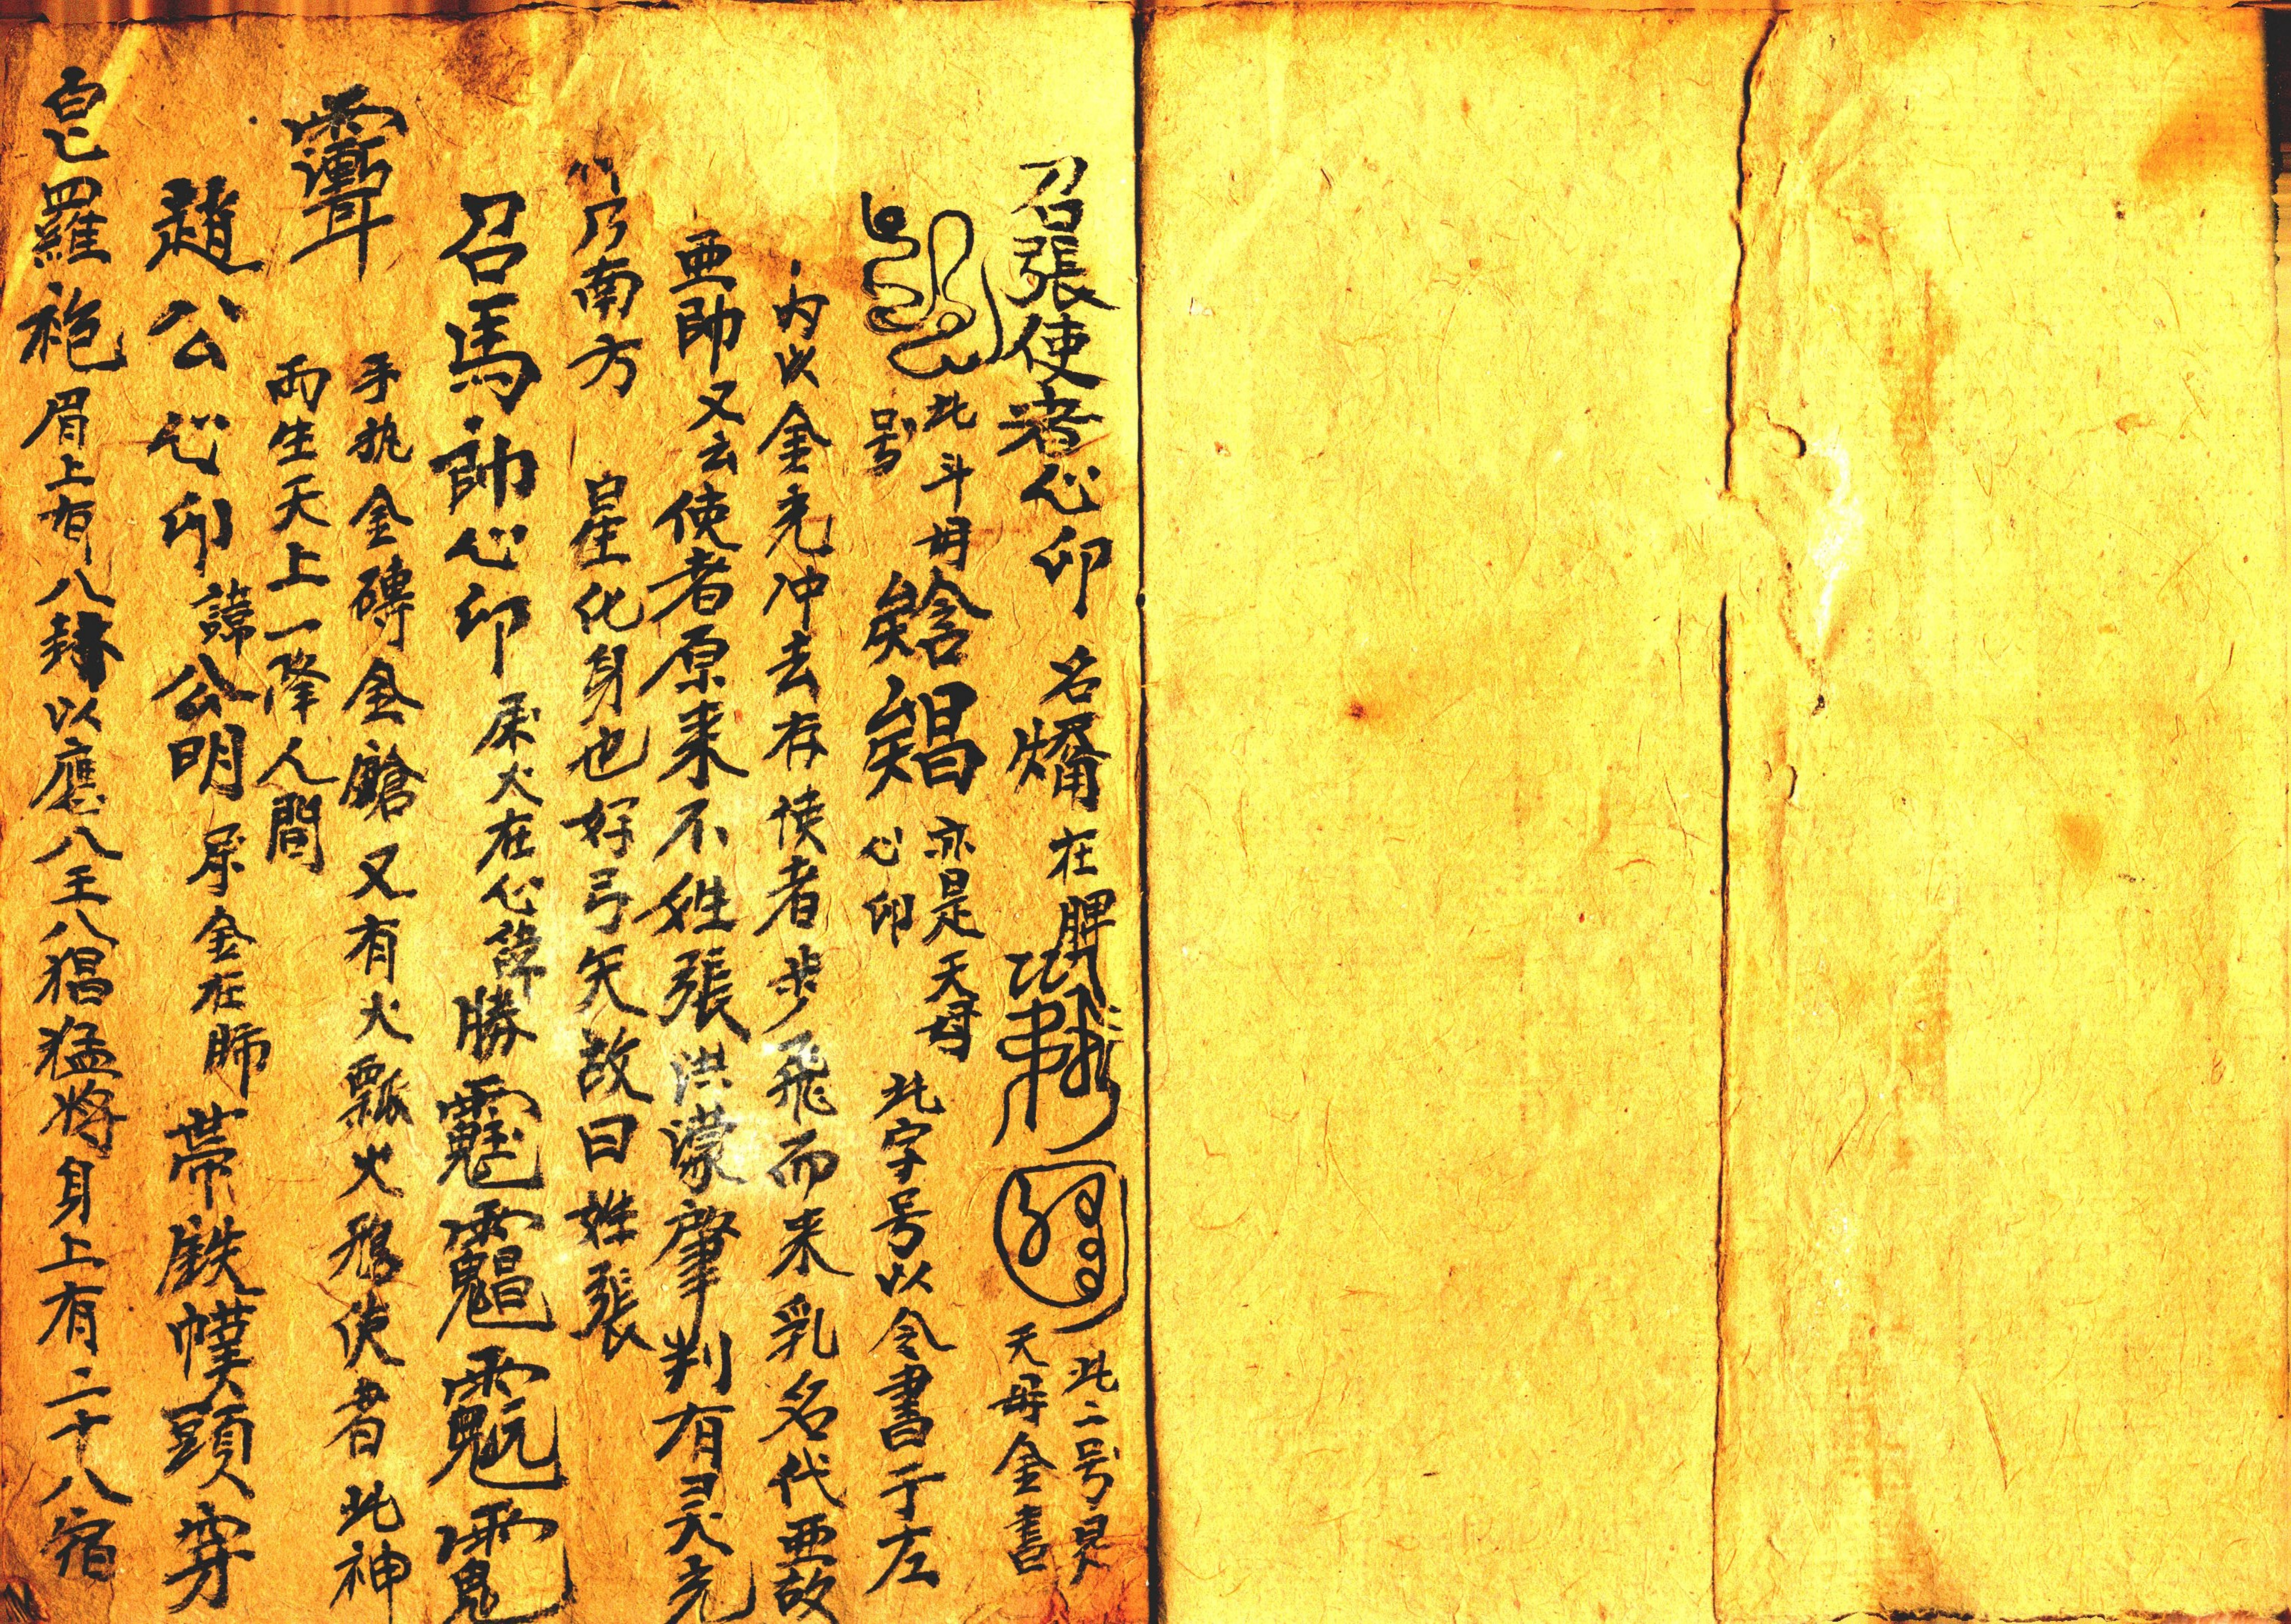 召張使者心印 名燔 在脾 此二号是天母金書
此斗母号 亦是天母心印 此字号以令書于左
内以金光冲去存使者步飛而来乳名代亜故
亜帥又云使者原来不姓張洪濛肇判有灵光
乃南方 星化身也好弓矢故曰姓張
召馬帥心印 尿火在心諱勝
手执金磚金鎗又有火瓢火鴉使者此神
両生天上一降人間
趙公心印 諱公明 尿金在肺 帯鉄幞頭穿
皂羅袍眉上有八 以應八王八猖猛将身上有二十八宿